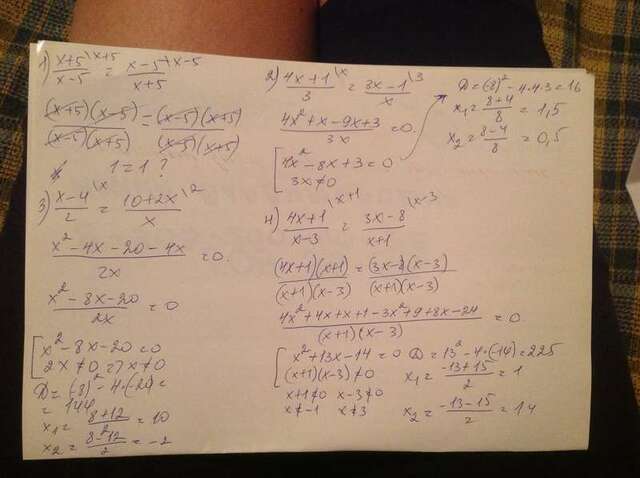 1) x+5\x+5 / x-5 = x-5\x-5 / x+5
(x+5)(x-5) / (x-5)(x+5) = (x-5)(x+5) / (x-5)(x+5)
1 = 1 ?
2) 4x+1\x / 3 = 3x-1\3 / x
4x²+x-9x+3 / 3x = 0.
[ 4x²-8x+3=0
3x≠0
D=(-8)²-4·4·3=16
x₁= 8+4 / 8 = 1,5
x₂= 8-4 / 8 = 0,5
3) x-4\x / 2 = 10+2x\2 / x
x²-4x-20-4x / 2x = 0.
x²-8x-20 / 2x = 0
[ x²-8x-20=0
2x≠0 => x≠0
D=(-8)²-4·(-20)=
= 144
x₁= 8+12 / 2 = 10
x₂= 8-12 / 2 = -2
4) 4x+1\x+1 / x-3 = 3x-8\x-3 / x+1
(4x+1)(x+1) / (x+1)(x-3) = (3x-8)(x-3) / (x+1)(x-3)
4x²+4x+x+1-3x²+9+8x-24 / (x+1)(x-3) = 0.
[ x²+13x-14=0
(x+1)(x-3)≠0
x+1≠0 x-3≠0
x≠-1 x≠3
D=13²-4·(-14)=225
x₁= -13+15 / 2 = 1
x₂= -13-15 / 2 = 14